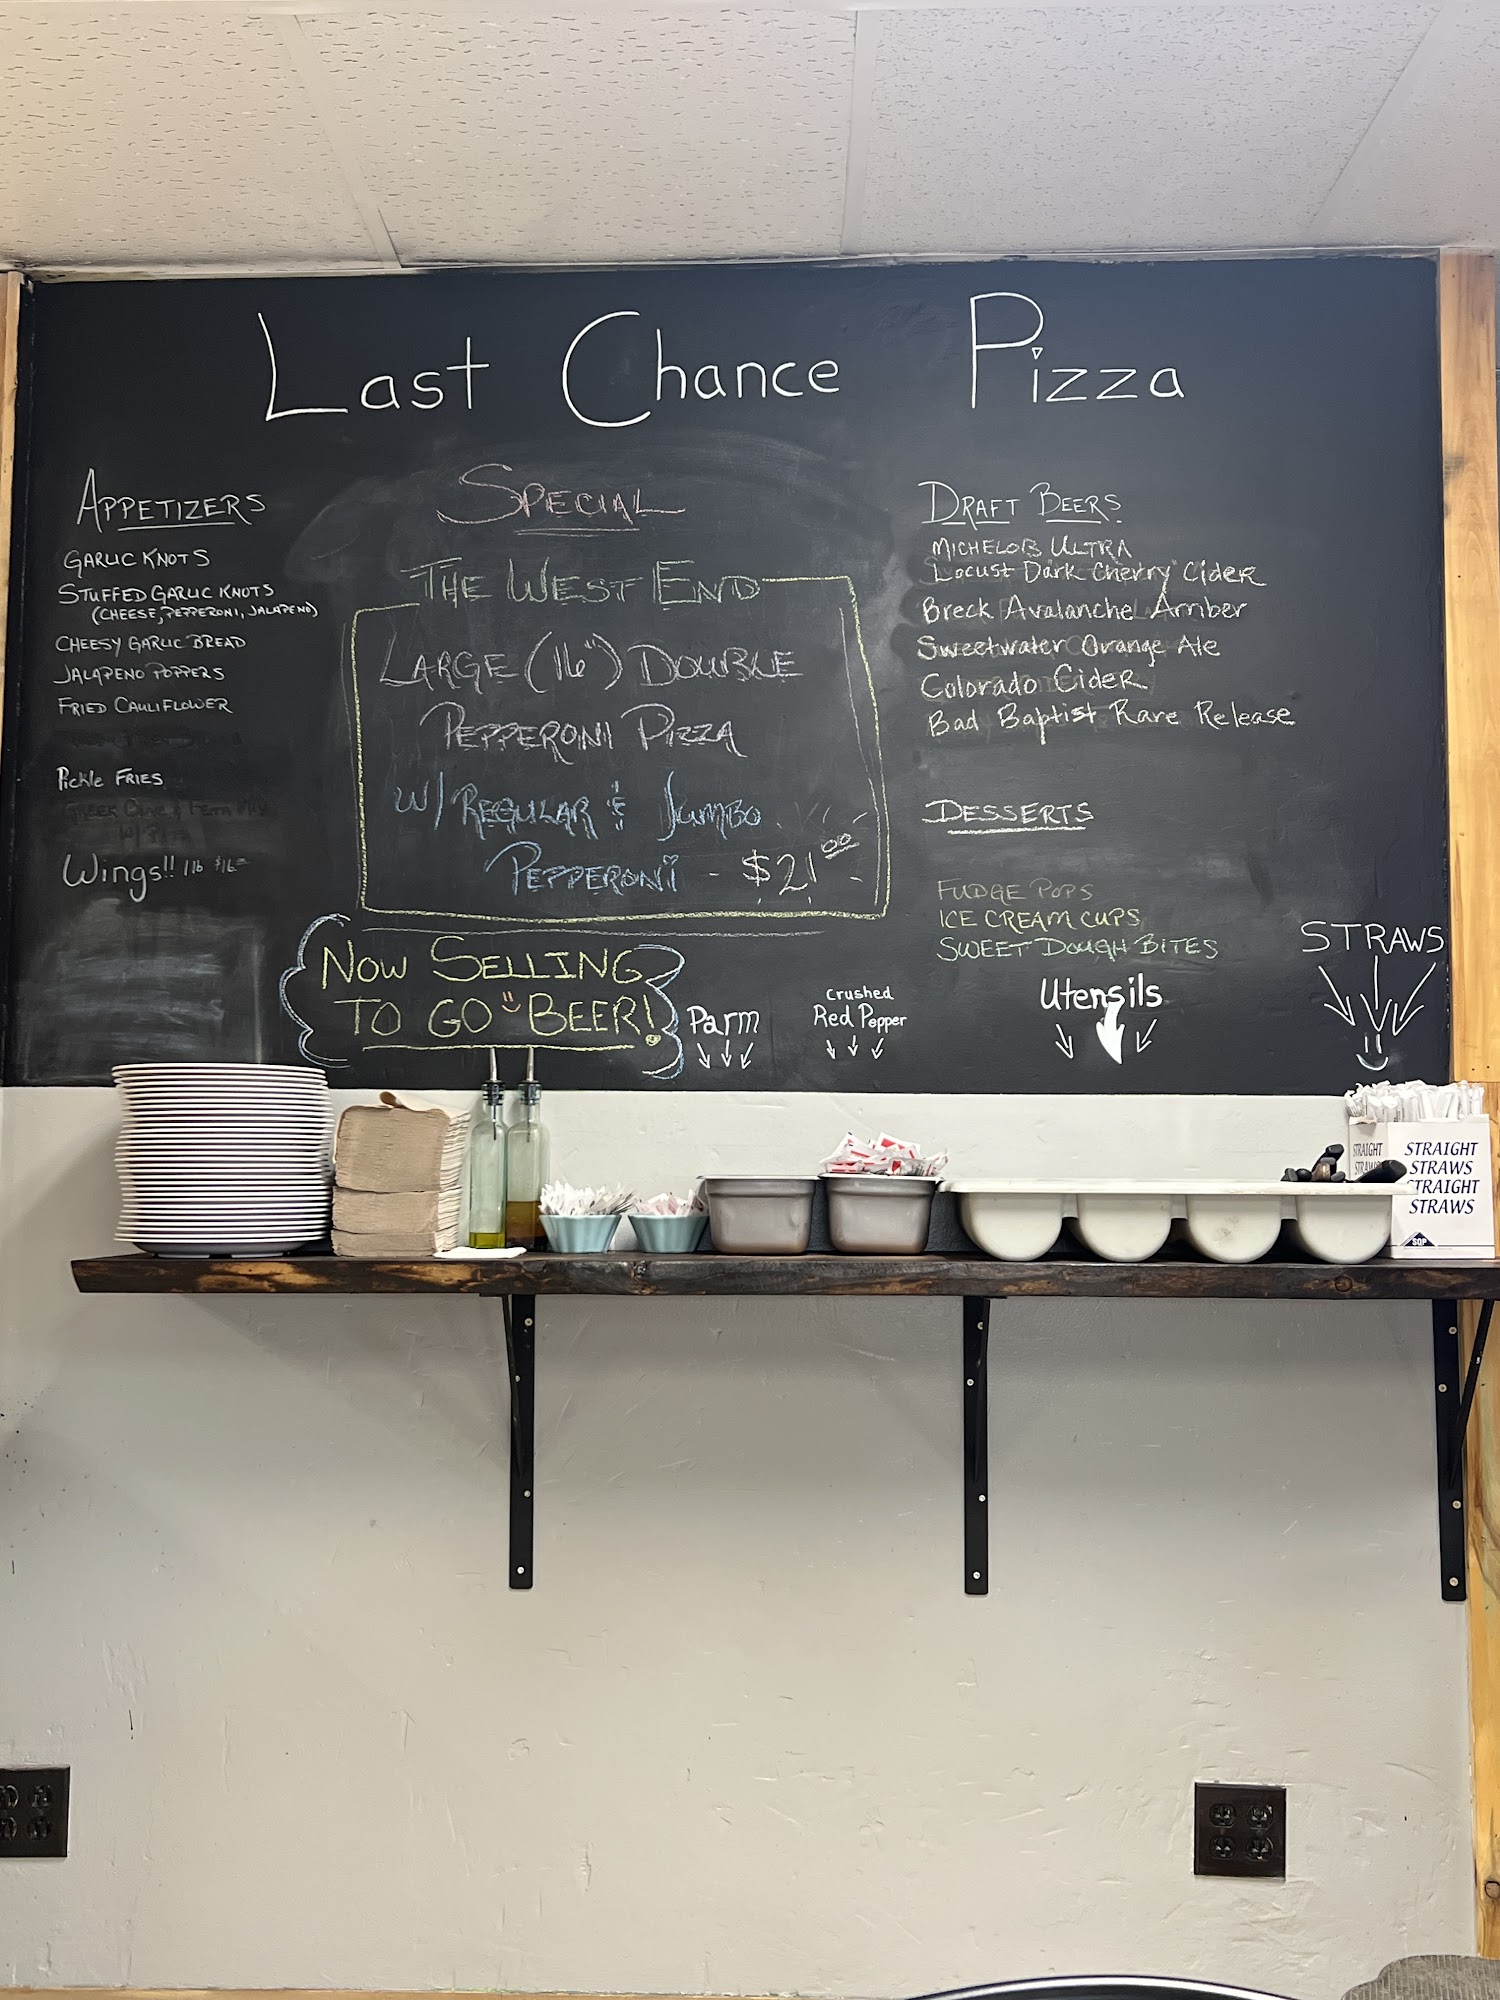 Last Chance Pizza
APPETIZERS
GARLIC KNOTS
STUFFED GARLIC KNOTS
(CHEESE, PEPPERONI, JALAPENO)
CHEESY GARLIC BREAD
JALAPENO POPPERS
FRIED CAULIFLOWER
Pickle FRIES
Wings!! 1lb $16
SPECIAL
THE WEST END
LARGE (16") DOUBLE
PEPPERONI PIZZA
W/ REGULAR & JUMBO
PEPPERONI - $21.00 -
NOW SELLING
TO GO BEER!
DRAFT BEERS
MICHELOB ULTRA
Locust Dark Cherry Cider
Breck Avalanche Amber
Sweetwater Orange Ale
Colorado Cider
Bad Baptist Rare Release
DESSERTS
FUDGE POPS
ICE CREAM CUPS
SWEET DOUGH BITES
Parm
Crushed
Red Pepper
Utensils
STRAWS
STRAIGHT
STRAWS
STRAIGHT
STRAWS
STRAIGHT
STRAWS
SQP